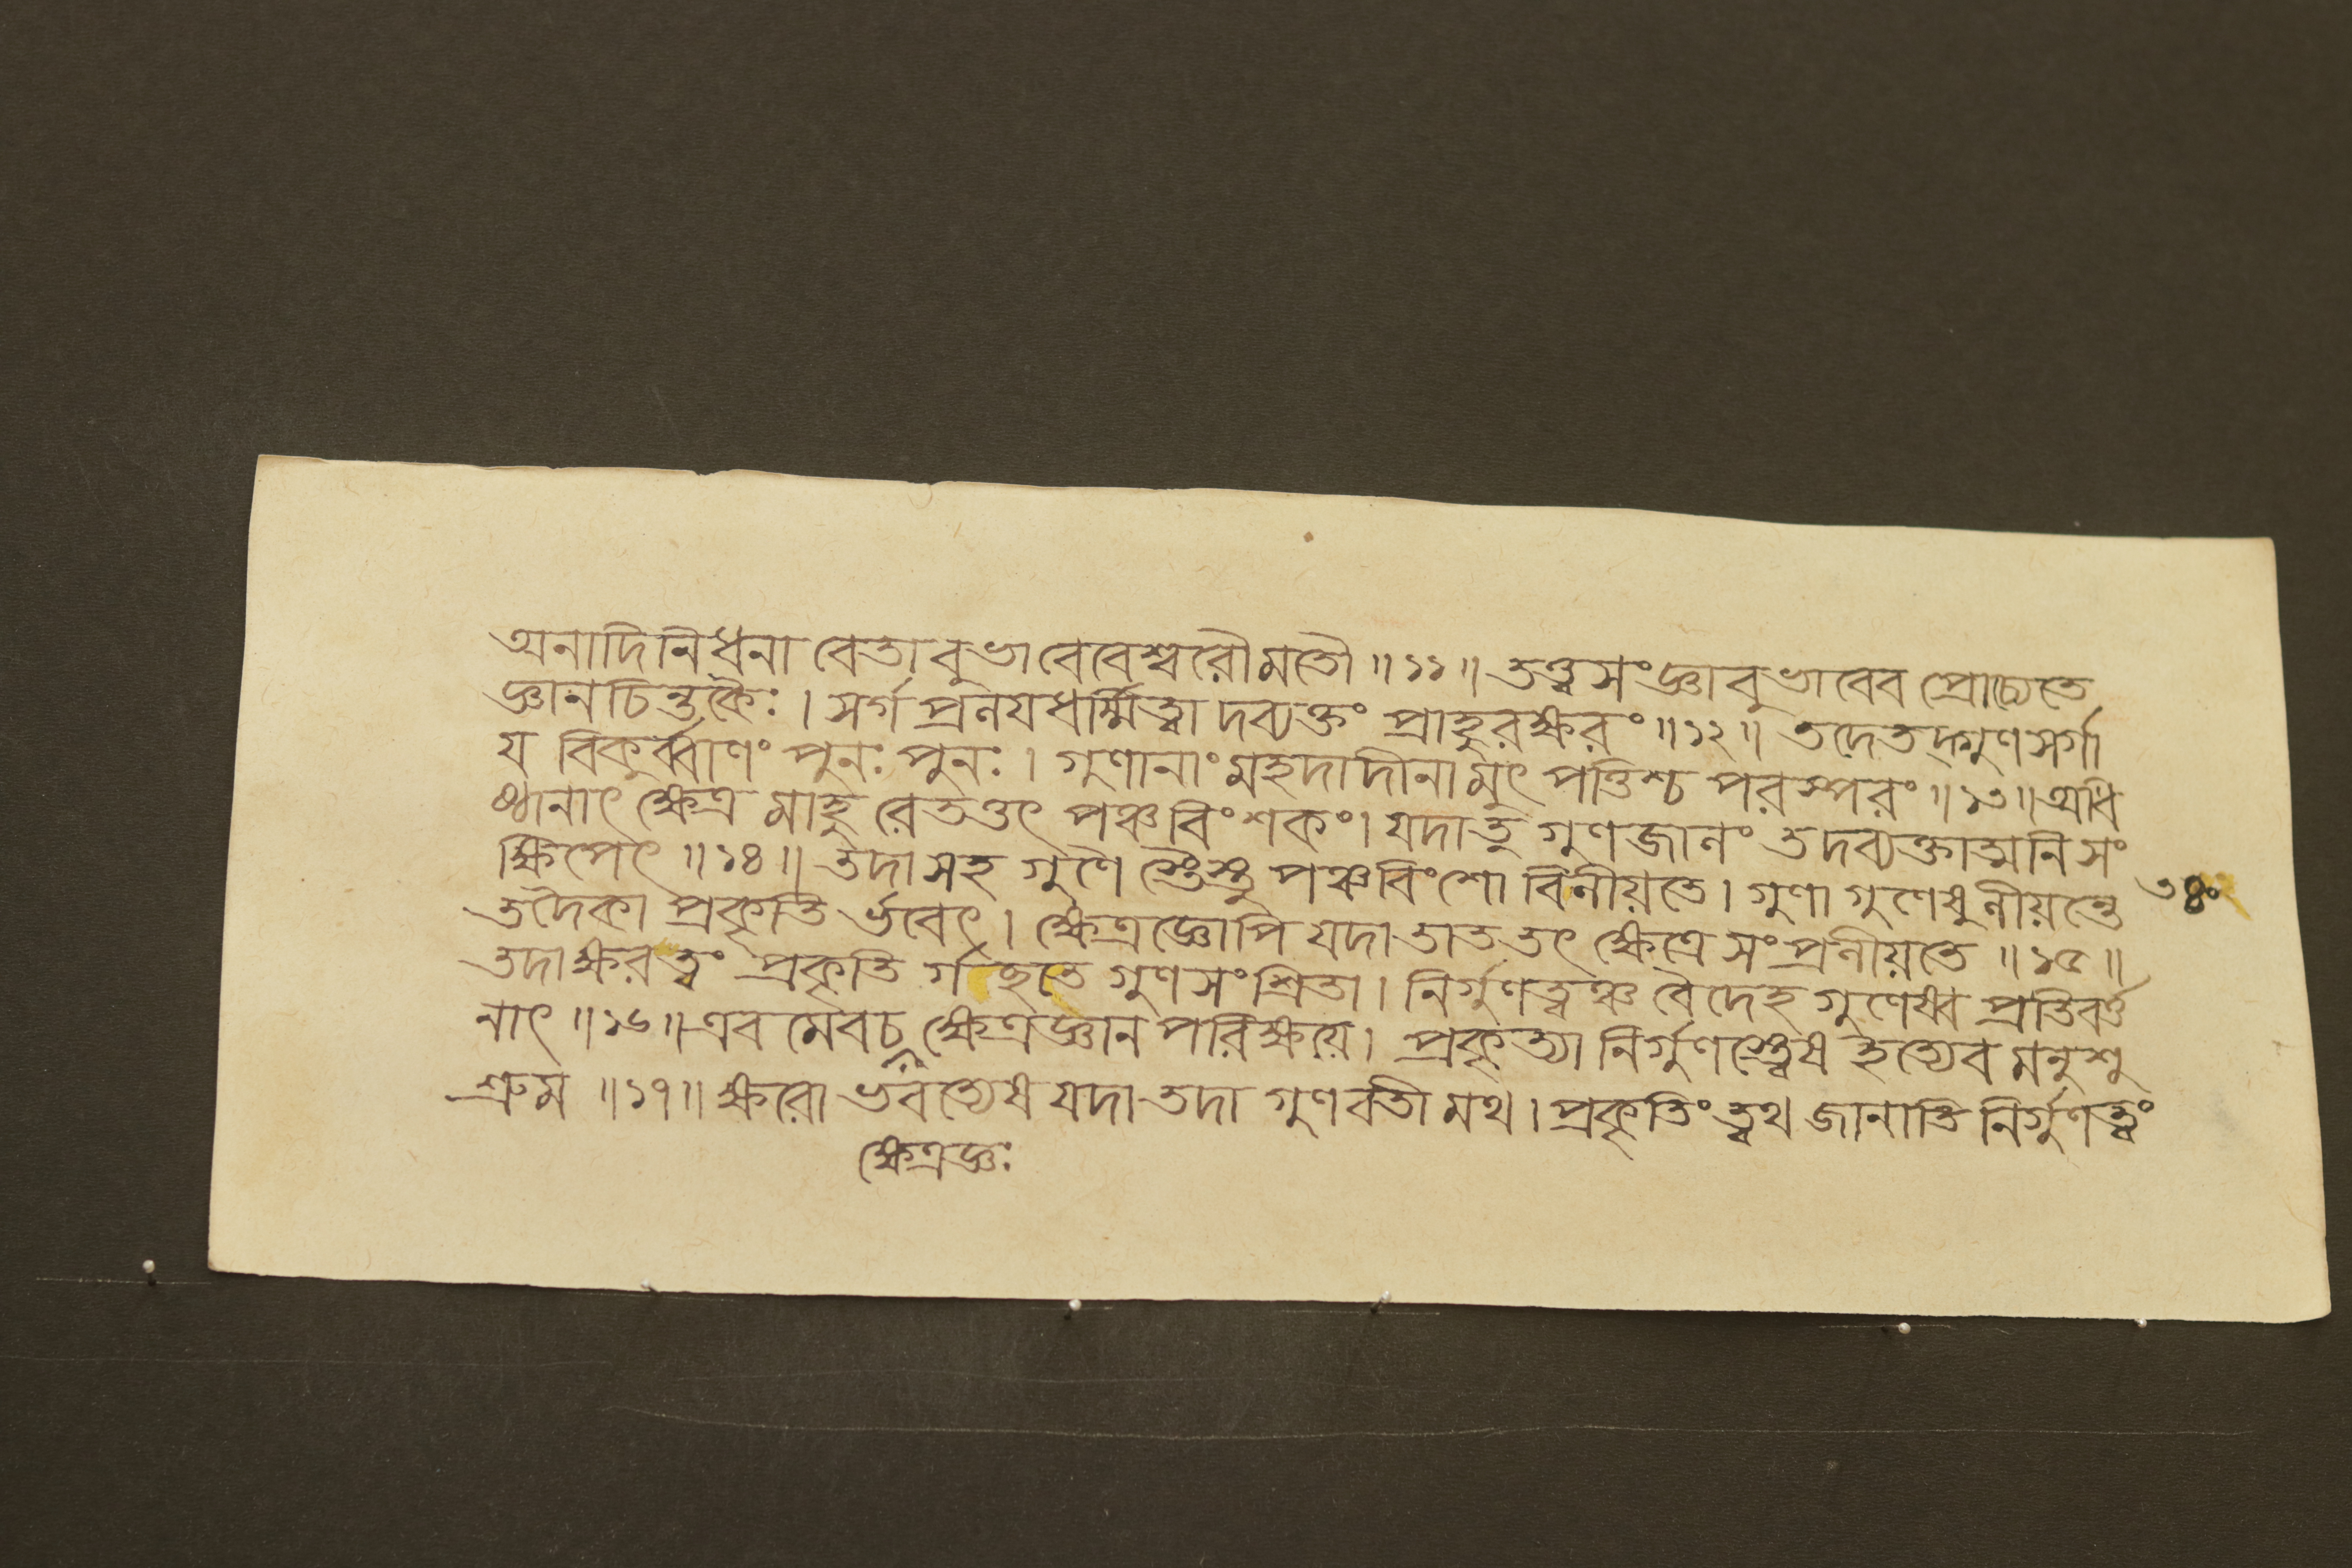 অনাদিনিধনা বেতাবুভাবেবেশ্বরৌমতৌ ॥১১॥ তত্ত্বসংজ্ঞাবুভাবেব প্রোচ্যেতে
জ্ঞানচিন্তকৈঃ । সর্গপ্রলয়ধর্ম্মিত্বা দব্যক্তং প্রাহুরক্ষরং ॥১২॥ তদেতদ্গুণসর্গা
য বিকুর্ব্বাণং পুনঃ পুনঃ । গুণানাং মহদাদীনামুৎপত্তিশ্চ পরস্পরং ॥১৩॥ অধি
ষ্ঠানাৎ ক্ষেত্র মাহু রেতত্তৎ পঞ্চবিংশকং। যদাতু গুণজালং তদব্যক্তাত্মনিসং
ক্ষিপেৎ ॥১৪॥ তদাসহ গুণৈ স্তৈস্তু পঞ্চবিংশো বিলীয়তে। গুণা গুণেষুলীয়ন্তে
তদৈকা প্রকৃতি র্ভবেৎ । ক্ষেত্রজ্ঞোপি যদা তাত তৎ ক্ষেত্রে সংপ্রলীয়তে ॥১৫॥
তদাক্ষরত্বং প্রকৃতি র্গচ্ছতে গুণসংশ্রিতা। নির্গুণত্বঞ্চ বৈদেহ গুণেষ্ব প্রতিবর্ত্ত
নাৎ ॥১৬॥ এবমেবচ ক্ষেত্রজ্ঞানপরিক্ষয়ে। প্রকৃত্যা নির্গুণস্ত্বেষ ইত্যেব মনুশু
শ্রুম ॥১৭॥ ক্ষরো ভবত্যেষ যদা তদা গুণবতী মথ । প্রকৃতিং ত্বথ জানাতি নির্গুণত্বং
ক্ষেত্রজ্ঞঃ